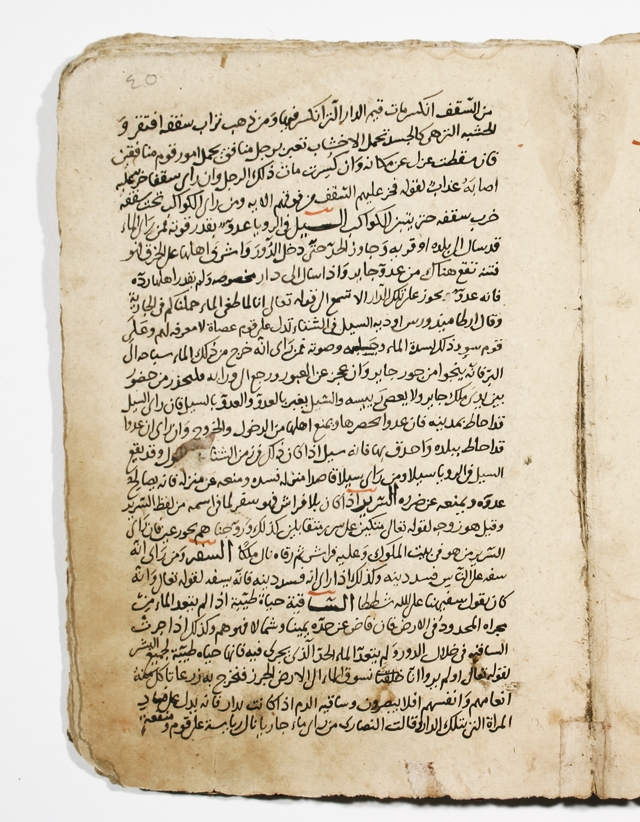 ٤٥
من السقف انكسر مات قيم الدار التي انكسر فيها ومن ذهب تراب سقفه افتقر و
الخشبه التي هي كالجسد تحمل الاخشاب تعبر برجل منافق يحمل امور قوم منافقين
فان سقطت عزل عن مكانه وان كسرت مات ذلك الرجل وان راى سقفا خر عليه
اصابه عذاب لقوله فخر عليهم السقف من فوقهم الايه ومن راى الكواكب تحت سقفه
خرب سقفه حتى يتبين الكواكب السيل في الرويا عدو بقدر قوته فمن راى الماء
قد سال الى بلده او قريه وجاوز الحد حتى دخل الدور واشرف اهلها على الغرق فهو
فتنه تقع هناك من عدو جاير واذا سال الى دار مخصوصه ولم يقدر اهلها رده
فانه عدو يجوز على تلك الدار الا تسمع الى قوله تعالى انا لما طغى الماء حملناكم في الجاريه
وقال ارطاميدورس اوديه السيل في الشتاء تدل على قوم عصاة لا معرفه لهم وعلى
قوم سوء وذلك لشدة الماء وصوته فمن راى انه خرج من ذلك الماء سباحه الى
البر فانه ينجوا من جور جاير وان عجز عن العبور ورجع الى ورايه فليحذر من حضور
بين يدي ملك جاير ولا يعصي والسيل يعبر بالعدو والعدو بالسيل فان راى السيل
قد احاط بمدينه فان عدوا يحصرها ويمنع اهلها من الدخول والخروج وان راى ان عدوا
قد احاط ببلده واحدق بها فانه سيل اذا كان ذلك في زمن الشتا وقد يقع
السيل في الرويا سيلا ومن راى سيلا قاصدا منزله فسده ومنعه عن منزله فانه يصالح
عدوه ويمنعه عن ضرره السرير اذا كان بلا فراش فهو سفر لما في اسمه من لفظ السرير
وقيل هو زوجه لقوله تعالى متكئين على سرر متقابلين كذلك وزوجناهم بحور عين فان راى
السرير من هو في بيت الملوك وعليه فراش ثم رقاه نال ملكا السفه ومن راى انه
سفه على الناس فسد دينه وكذلك اذا راى انه فسد دينه فانه يسفه لقوله تعالى وانه
كان يقول سفيهنا على الله شططا الساقية حياة طيبة اذا لم يتعد الماء من
مجراه المحدود في الارض فان فاض عن حده يمينا وشمالا فهو هم وكذلك اذا جرت
الساقيه في خلال الدور ولم يتعد الماء الحد الذي يجري فيه فانها حياه طيبة لجميع البشر
لقوله تعالى اولم يروا انا نسوق الماء الى الارض الجرز فنخرج به زرعا تاكل منه
انعامهم وانفسهم افلا يبصرون وساقيه الدم اذا كانت بدار فانه يدل على فساد
المراة التي بتلك الدار وقالت النصارى من راى ماء جاريا نال رياسة على قوم ومنفعة